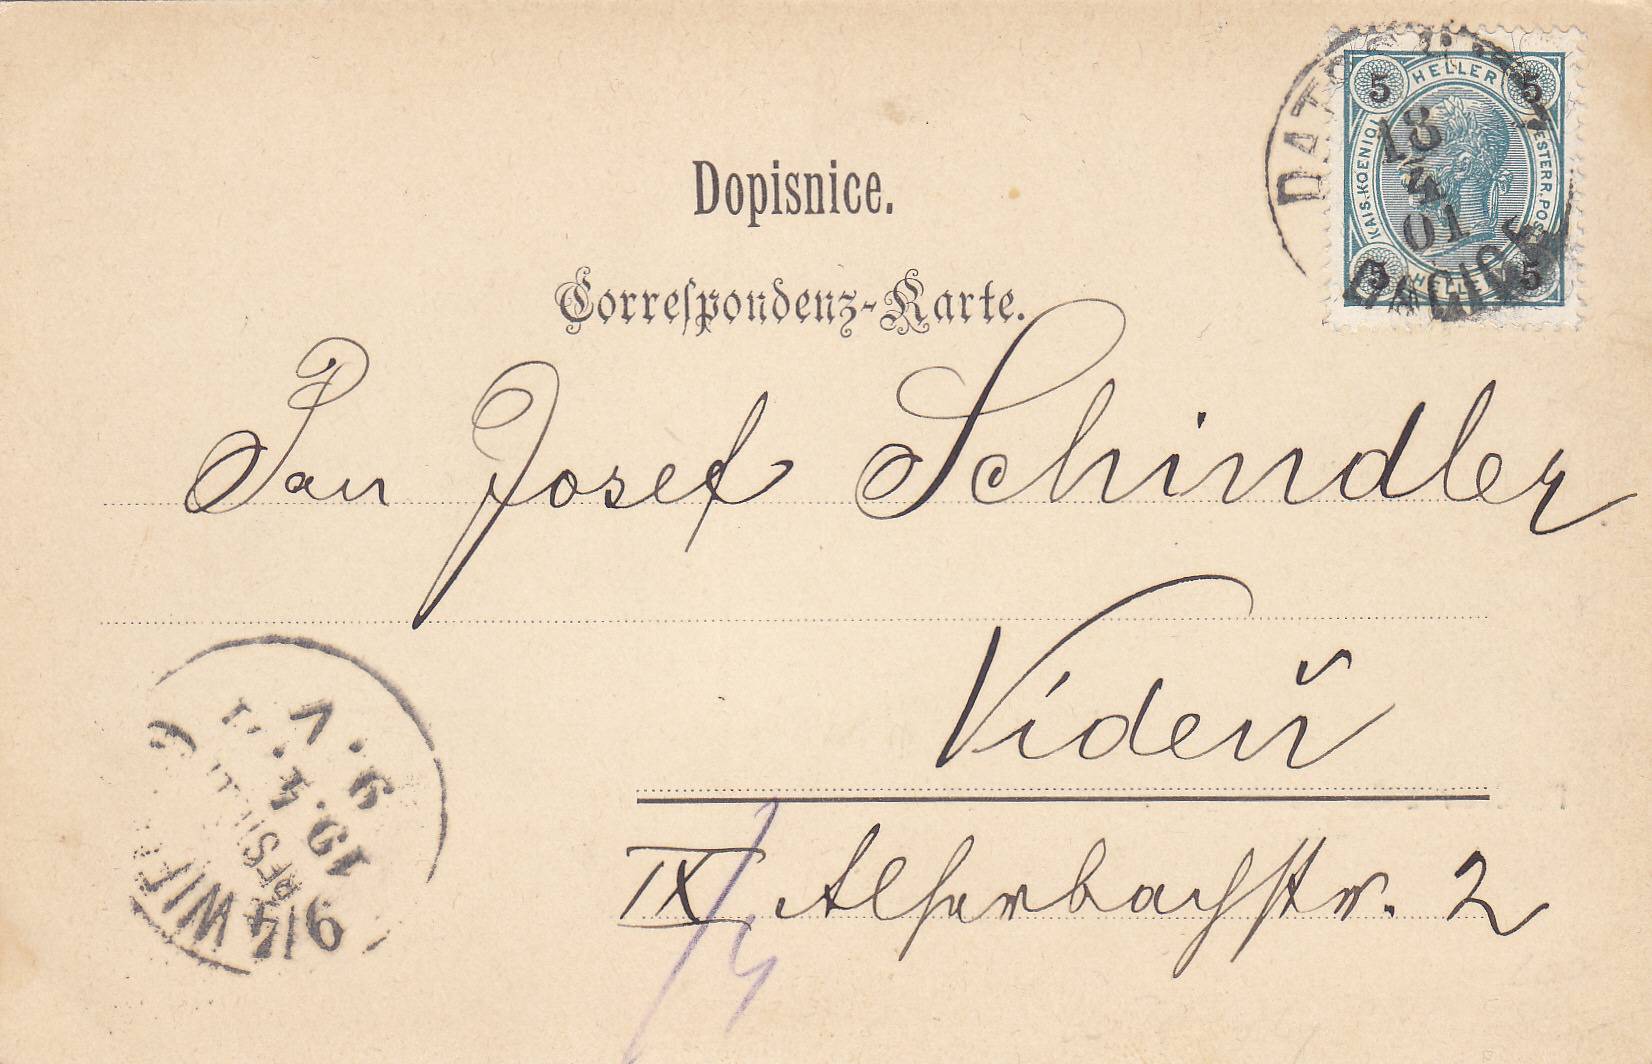 Dopisnice.
Correspondenz-Karte.
5 HELLER 5
KAIS. KOENIGL. OESTERR. POST
5 HELLER 5
18
4
01
DAČICE
Pan Josef Schindler
Vídeň
IX Alserbachstr. 2
9/4 WIEN
19. 4. 01
9. V